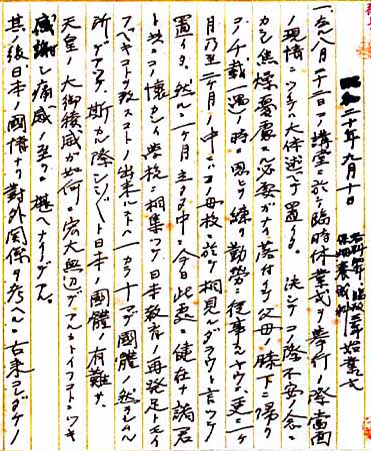 昭和二十年九月十日
一、八月二十二日ノ講堂ニ於ケル臨時休業式ヲ挙行ノ際当面
ノ現情ニツキテ大体述ベテ置イタ。決シテコノ際不安ノ念ニ
カラレ焦燥憂慮ノ必要ガナイ、落付イテ父母ノ膝下ニ帰リ
コノ千載一遇ノ時ニ思ヲ練リ勤労ニ従事スルヤウ、更ニ一ケ
月乃至二ケ月ノ中ニハコノ母校ニ於テ相見ユルデアラウト言ツテ
置イタ。然ルニ一ケ月立タヌ中ニ今日此処ニ健在ナ諸君
ト共ニコノ懐カシイ学校ニ相集ツテ日本教育ノ再発足トモイ
フベキコトヲ致スコトノ出来ルノハ一ニカヽリテ国体ノ然ラシムル
所デアツテ、斯カル際シンジツト日本ノ国体ノ有難サ、
天皇ノ大御稜威ガ如何ニ宏大無辺デアルカトイフコトニツキ
感謝シ痛感ノ至リニ堪ヘナイノデアル。
其ノ後日本ノ国情ナリ対外関係ヲ考ヘルニ古来コレダケノ